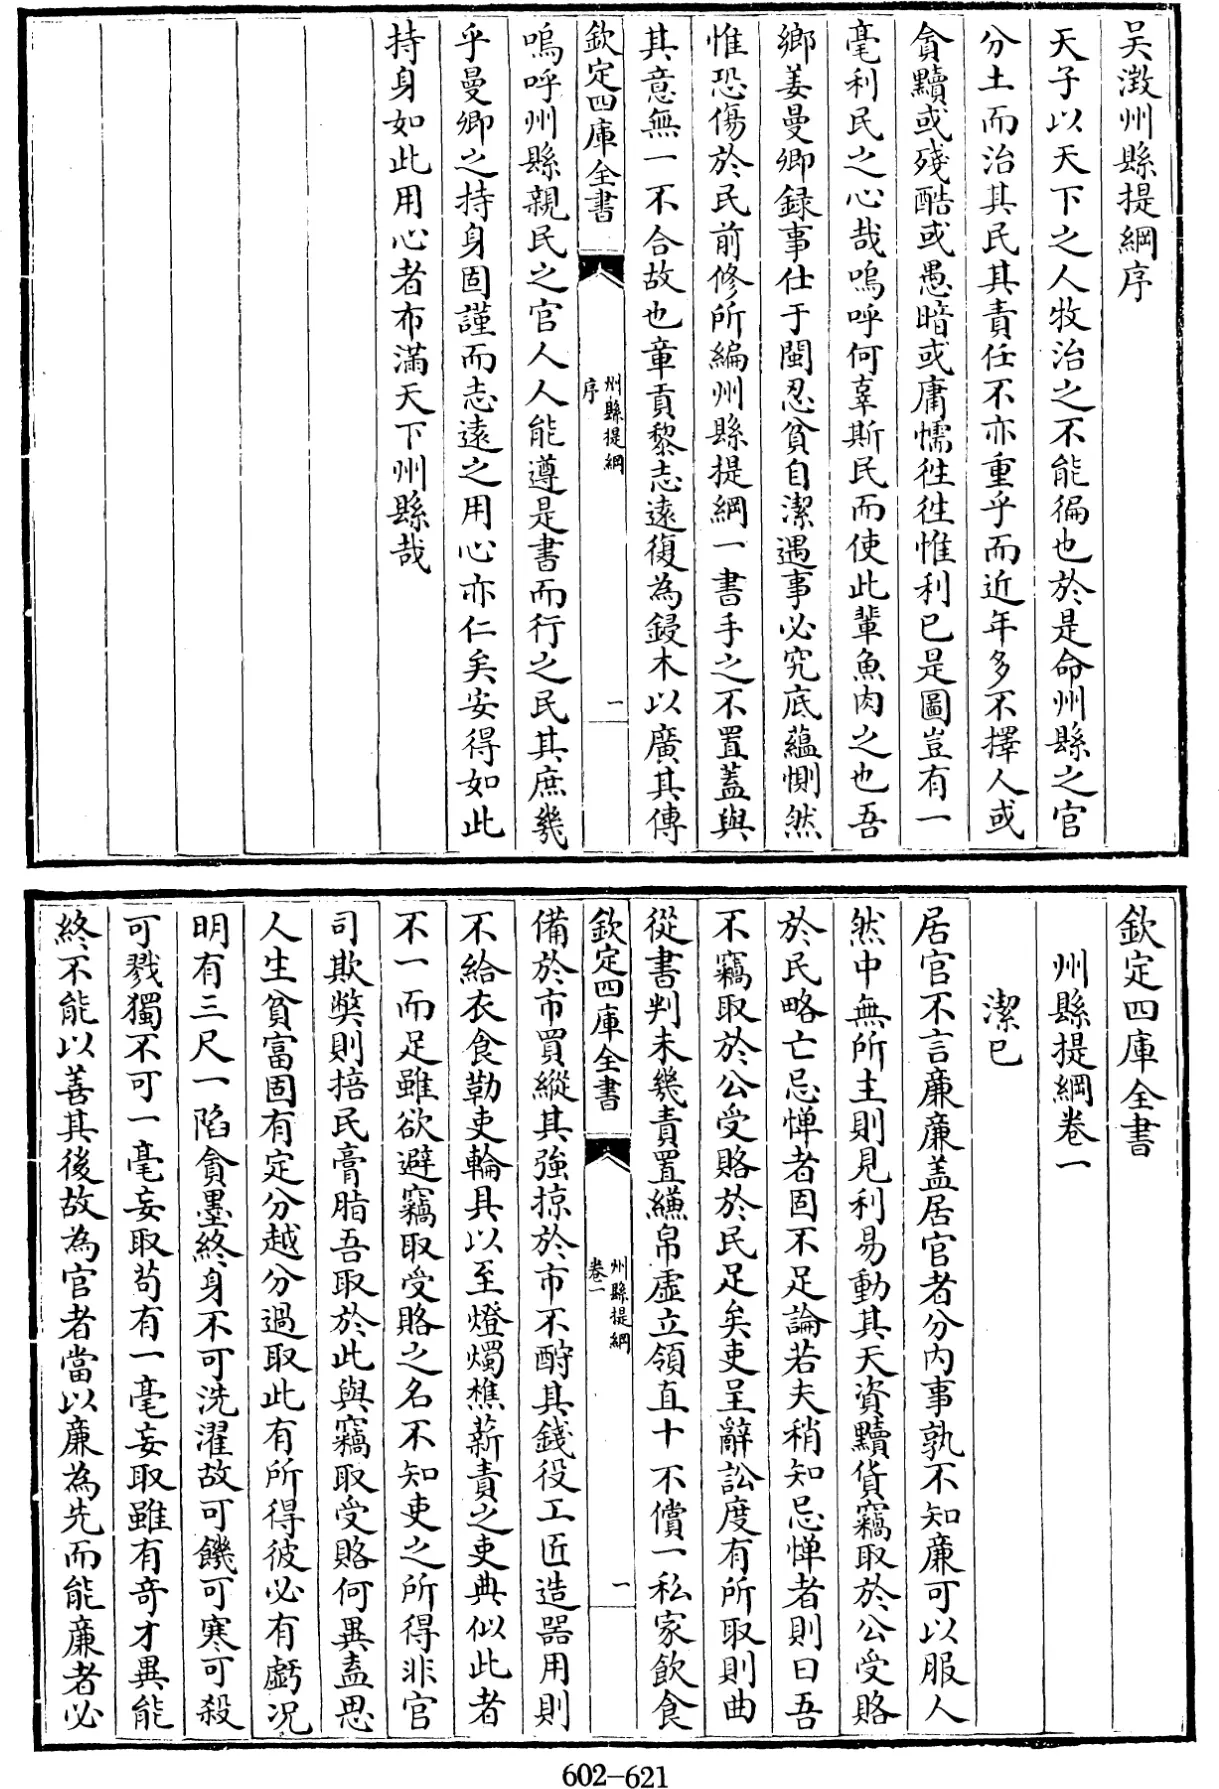 吴澂州縣提綱序
天子以天下之人牧治之不能徧也於是命州縣之官
分土而治其民其責任不亦重乎而近年多不擇人或
貪黷或殘酷或愚暗或庸懦徃徃惟利已是圖豈有一
毫利民之心哉嗚呼何辜斯民而使此輩魚肉之也吾
鄉姜曼卿録事仕于閩忍貧自潔遇事必究底蘊惻然
惟恐傷於民前修所編州縣提綱一書手之不置葢與
其意無一不合故也章貢黎志遠復為鋟木以廣其傳
欽定四庫全書
州縣提綱
序
一
嗚呼州縣親民之官人人能遵是書而行之民其庶幾
乎曼卿之持身固謹而志遠之用心亦仁矣安得如此
持身如此用心者布滿天下州縣哉
欽定四庫全書
州縣提綱卷一
潔已
居官不言亷亷盖居官者分内事孰不知亷可以服人
然中無所主則見利易動其天資黷貨竊取於公受賂
於民略亡忌憚者固不足論若夫稍知忌憚者則曰吾
不竊取於公受賂於民足矣吏呈辭訟度有所取則曲
從書判未幾責置縑帛虛立領直十不償一私家飲食
欽定四庫全書
州縣提綱
卷一
一
備於市買縱其強掠於市不酧其錢役工匠造器用則
不給衣食勒吏輪具以至燈燭樵薪責之吏典似此者
不一而足雖欲避竊取受賂之名不知吏之所得非官
司欺弊則掊民膏脂吾取於此與竊取受賂何異盍思
人生貧富固有定分越分過取此有所得彼必有虧况
明有三尺一陷貪墨終身不可洗濯故可饑可寒可殺
可戮獨不可一毫妄取茍有一毫妄取雖有奇才異能
終不能以善其後故為官者當以亷為先而能亷者必
602-621